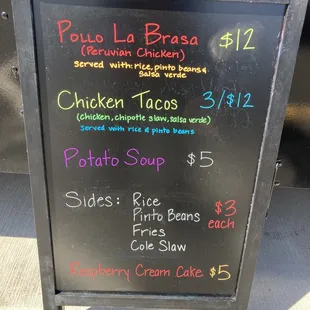 Pollo La Brasa $12
(Peruvian Chicken)
served with: rice, pinto beans &
salsa verde
Chicken Tacos 3/$12
(chicken, chipotle slaw, salsa verde)
served with rice & pinto beans
Potato Soup $5
Sides: Rice $3
Pinto Beans each
Fries
Cole Slaw
Raspberry Cream Cake $5